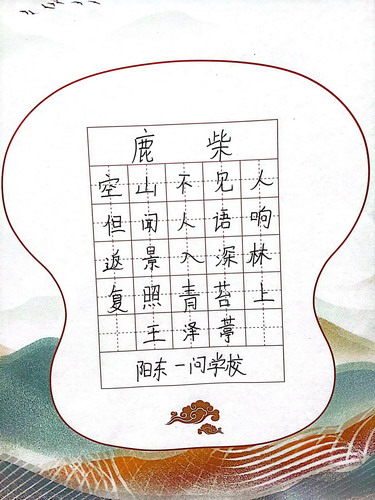 鹿柴
空山不见人
但闻人语响
返景入深林
复照青苔上
王泽葶
阳东一问学校